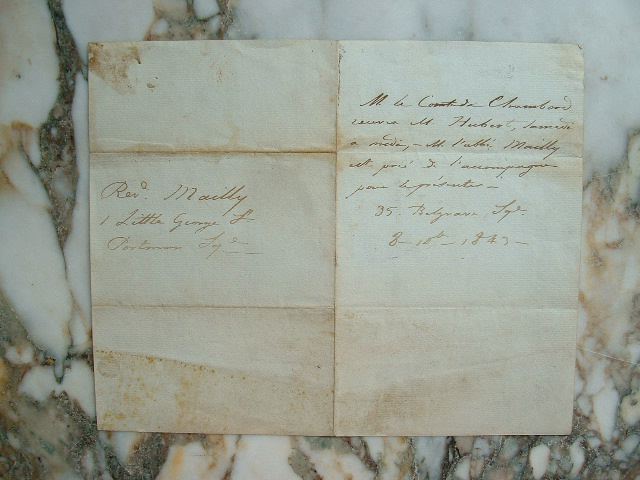 Revd. Mailly
1 Little George St
Portman Sqe
M le Comte de Chambord
recevra M Hubert, samedi
a midi, - M. l'abbé Mailly
est prié de l'accompagner
pour le présenter -
35. Belgrave Sqe.
8 - 1843 -